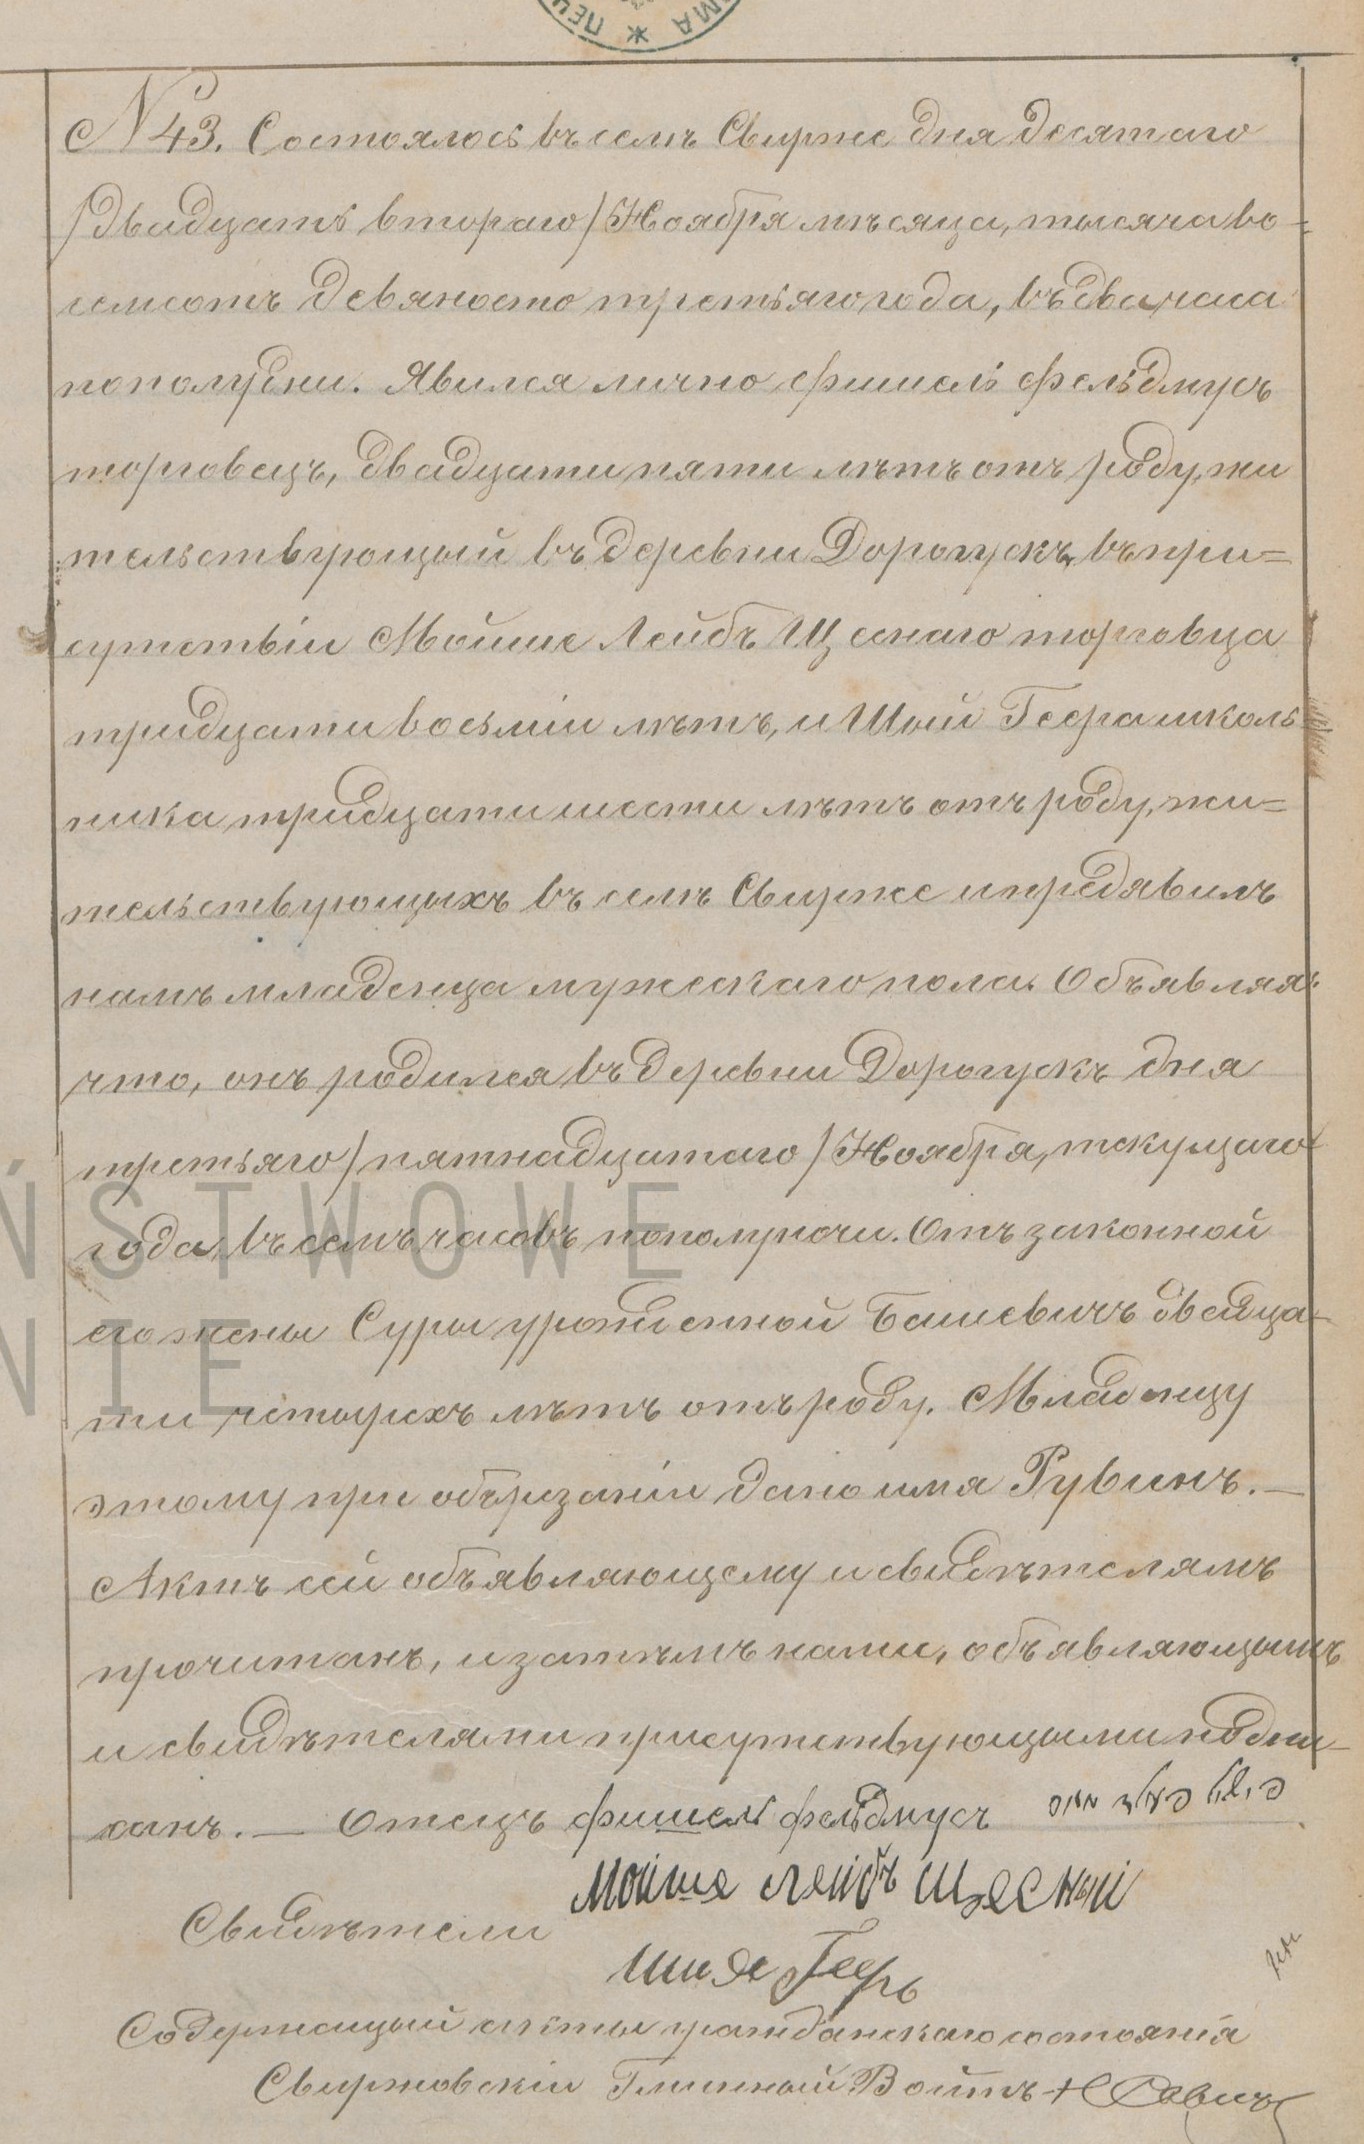 ПЕЧ * МА
N 43. Состоялось въ селѣ Свирже дня десятаго
/двадцать втораго/ Ноября мѣсяца, тысяча во-
семсотъ девяносто третьяго года, въ два часа
пополудни. Явился лично Фишель Фельдмусъ
торговецъ, двадцати пяти лѣтъ отъ роду, жи
тельствующій въ деревни Дорогускъ, въ при=
сутствіи Мойше Лейбъ Щеснаго торговца
тридцати восьми лѣтъ, и Шыи Геера школь
ника тридцати шести лѣтъ отъ роду, жи=
тельствующыхъ въ селѣ Свирже и предявилъ
намъ младенца мужескаго пола. Объявляя:
что, онъ родился въ деревни Дорогускъ дня
третьяго/пятнадцатаго/Ноября, текущаго
года, въ семъ часовъ пополуночи. Отъ законной
его жены Суры урожденной Башевичъ двадца-
ти четырехъ лѣтъ отъ роду. Младенцу
этому при обрѣзаніи дано имя Рувинъ.—
Актъ сей объявляющему и свидѣтелямъ
прочитанъ, и затѣмъ нами, объявляющымъ
и свидѣтелями присутствующыми подпи-
санъ.— Отецъ Фишель Фельдмусъ פישל פעלדמוס
Мойше Лейбъ Щесный
Свидѣтели
Шия Гееръ
Содержащый акты гражданскаго состоянія
Свиржовскій Гминный Войтъ
ŃSTWOWE
NIE